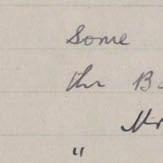 Some
the B
Mr
"